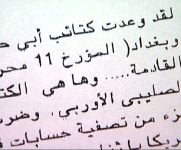 لقد وعدت كتائب أبي
وبغداد( المؤرخ 11 محر
القادمة..... وها هي الكتا
لصليبي الأوربي. وضرب
زء من تصفية حسابات